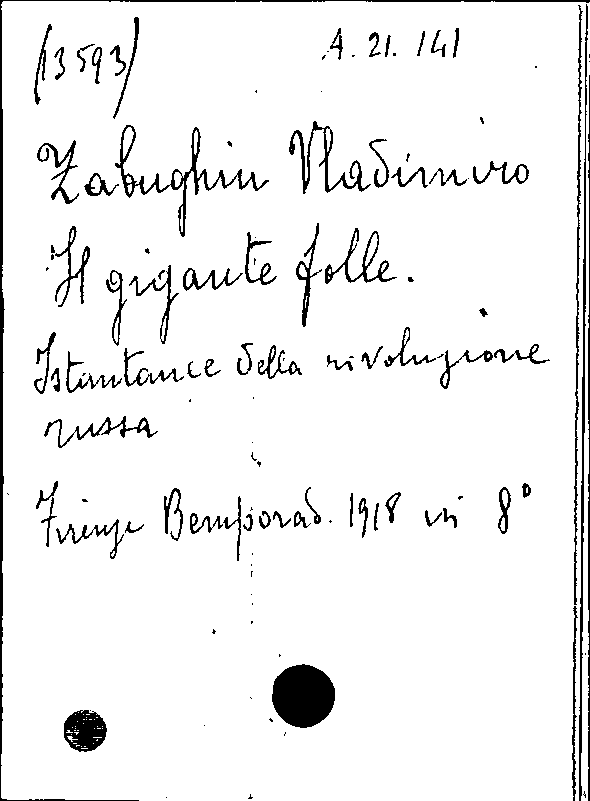 (13593)
A. 21. 141
Zabughin Vladimiro
Il gigante folle.
Istantanee della rivoluzione
russa
Firenze Bemporad. 1918 in 8°